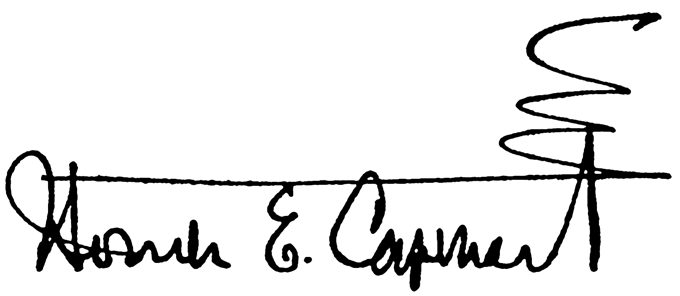 Homer E. Capehart